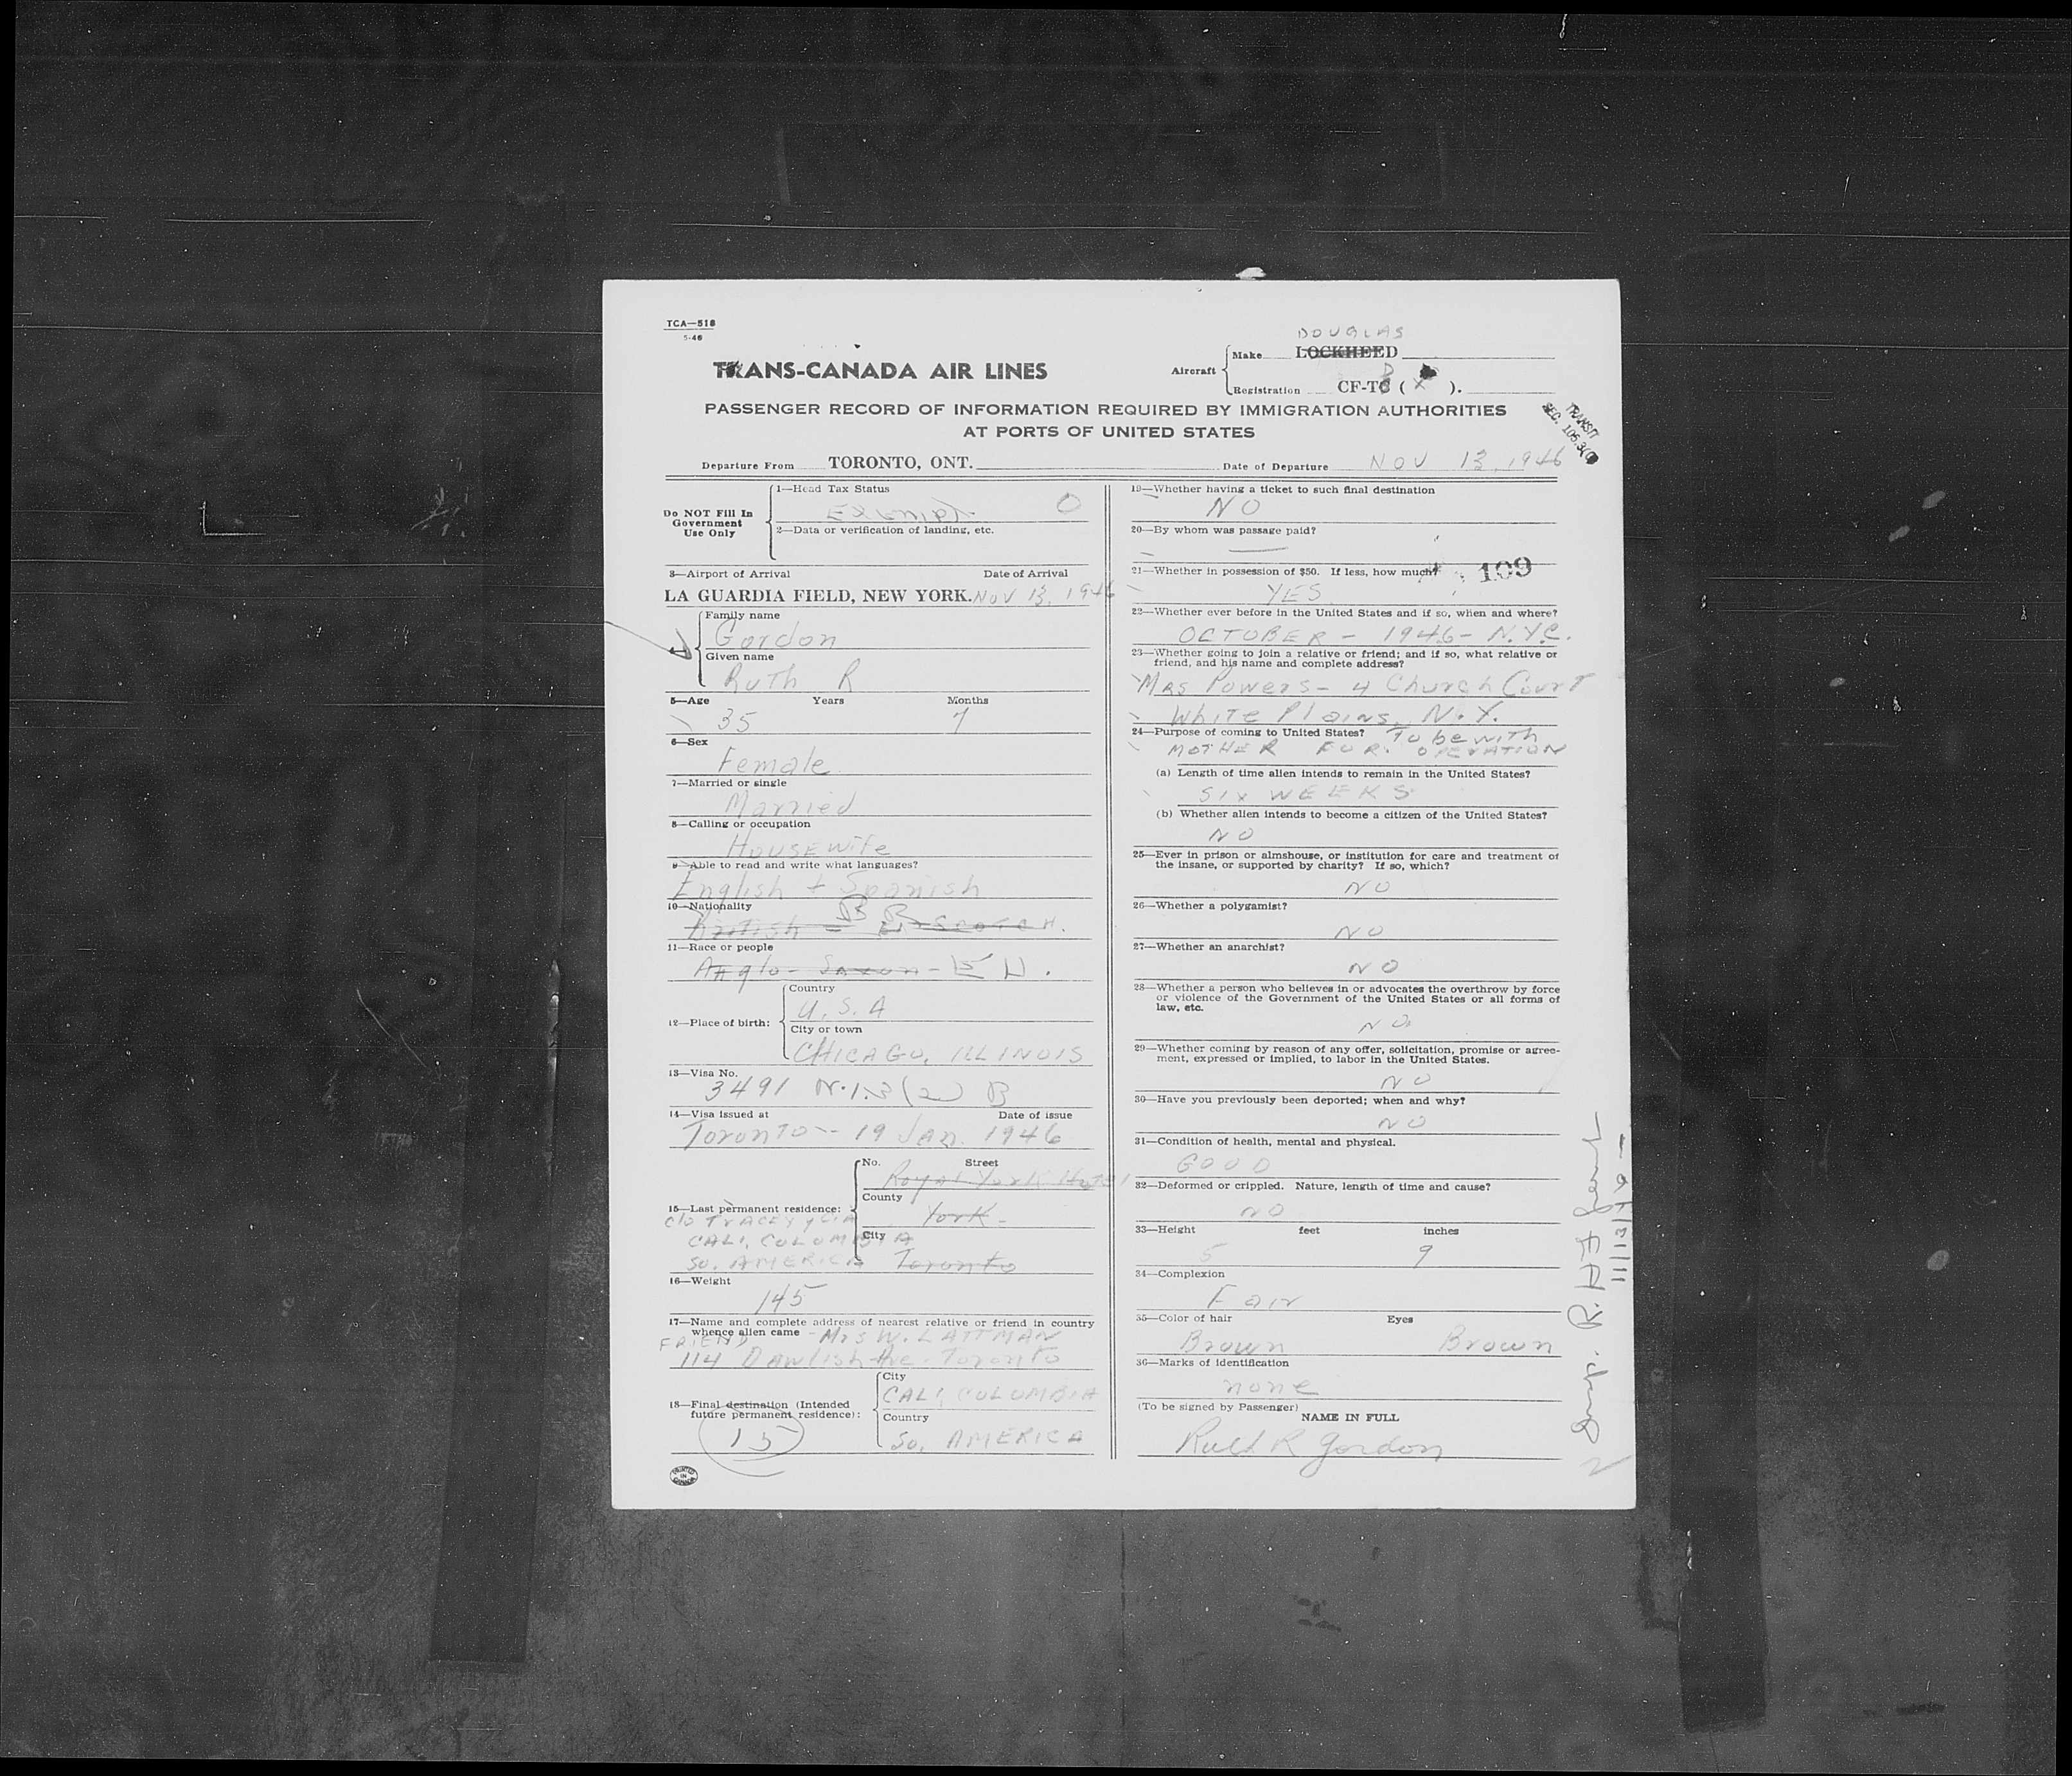 TCA—518
5-46
TRANS-CANADA AIR LINES
DOUGLAS
Aircraft
Make LOCKHEED
Registration CF-TC ( X ).
PASSENGER RECORD OF INFORMATION REQUIRED BY IMMIGRATION AUTHORITIES
AT PORTS OF UNITED STATES
TRANSIT
SEC. 105.3(
Departure From TORONTO, ONT. Date of Departure NOV 13, 1946
Do NOT Fill In
Government
Use Only
1—Head Tax Status
Exempt 0
2—Data or verification of landing, etc.
3—Airport of Arrival Date of Arrival
LA GUARDIA FIELD, NEW YORK. NOV 13, 1946
4—
Family name
Gordon
Given name
Ruth R
5—Age Years Months
35 7
6—Sex
Female
7—Married or single
Married
8—Calling or occupation
Housewife
9—Able to read and write what languages?
English + Spanish
10—Nationality
British - SCOTCH. B R
11—Race or people
Anglo-Saxon -
12—Place of birth:
Country
U.S.A
City or town
CHICAGO, ILLINOIS
13—Visa No.
3491 (2) B
14—Visa issued at Date of issue
Toronto -- 19 Jan. 1946
15—Last permanent residence:
No. Street
Royal York Hotel
County
York -
City
Toronto
c/o TRACEY y CIA
CALI, COLUMBIA
So. AMERICA
16—Weight
145
17—Name and complete address of nearest relative or friend in country
whence alien came - Mrs W. LATTMAN
FRIEND
114 Dawlish Ave. Toronto
18—Final destination (Intended
future permanent residence):
15
City
CALI, COLUMBIA
Country
So. AMERICA
PRINTED
IN
CANADA
19—Whether having a ticket to such final destination
NO
20—By whom was passage paid?
21—Whether in possession of $50. If less, how much?
109
YES
22—Whether ever before in the United States and if so, when and where?
OCTOBER - 1946 - N.Y.C.
23—Whether going to join a relative or friend; and if so, what relative or
friend, and his name and complete address?
Mrs Powers - 4 Church Court
White Plains, N.Y.
24—Purpose of coming to United States? To be with
MOTHER FOR OPERATION
(a) Length of time alien intends to remain in the United States?
SIX WEEKS
(b) Whether alien intends to become a citizen of the United States?
NO
25—Ever in prison or almshouse, or institution for care and treatment of
the insane, or supported by charity? If so, which?
NO
26—Whether a polygamist?
NO
27—Whether an anarchist?
NO
28—Whether a person who believes in or advocates the overthrow by force
or violence of the Government of the United States or all forms of
law, etc.
NO
29—Whether coming by reason of any offer, solicitation, promise or agree-
ment, expressed or implied, to labor in the United States.
NO
30—Have you previously been deported; when and why?
NO
31—Condition of health, mental and physical.
GOOD
32—Deformed or crippled. Nature, length of time and cause?
NO
33—Height feet inches
5 9
34—Complexion
Fair
35—Color of hair Eyes
Brown Brown
36—Marks of identification
none
(To be signed by Passenger)
NAME IN FULL
Ruth R Gordon
Insp. R. H. F.
11/13/46